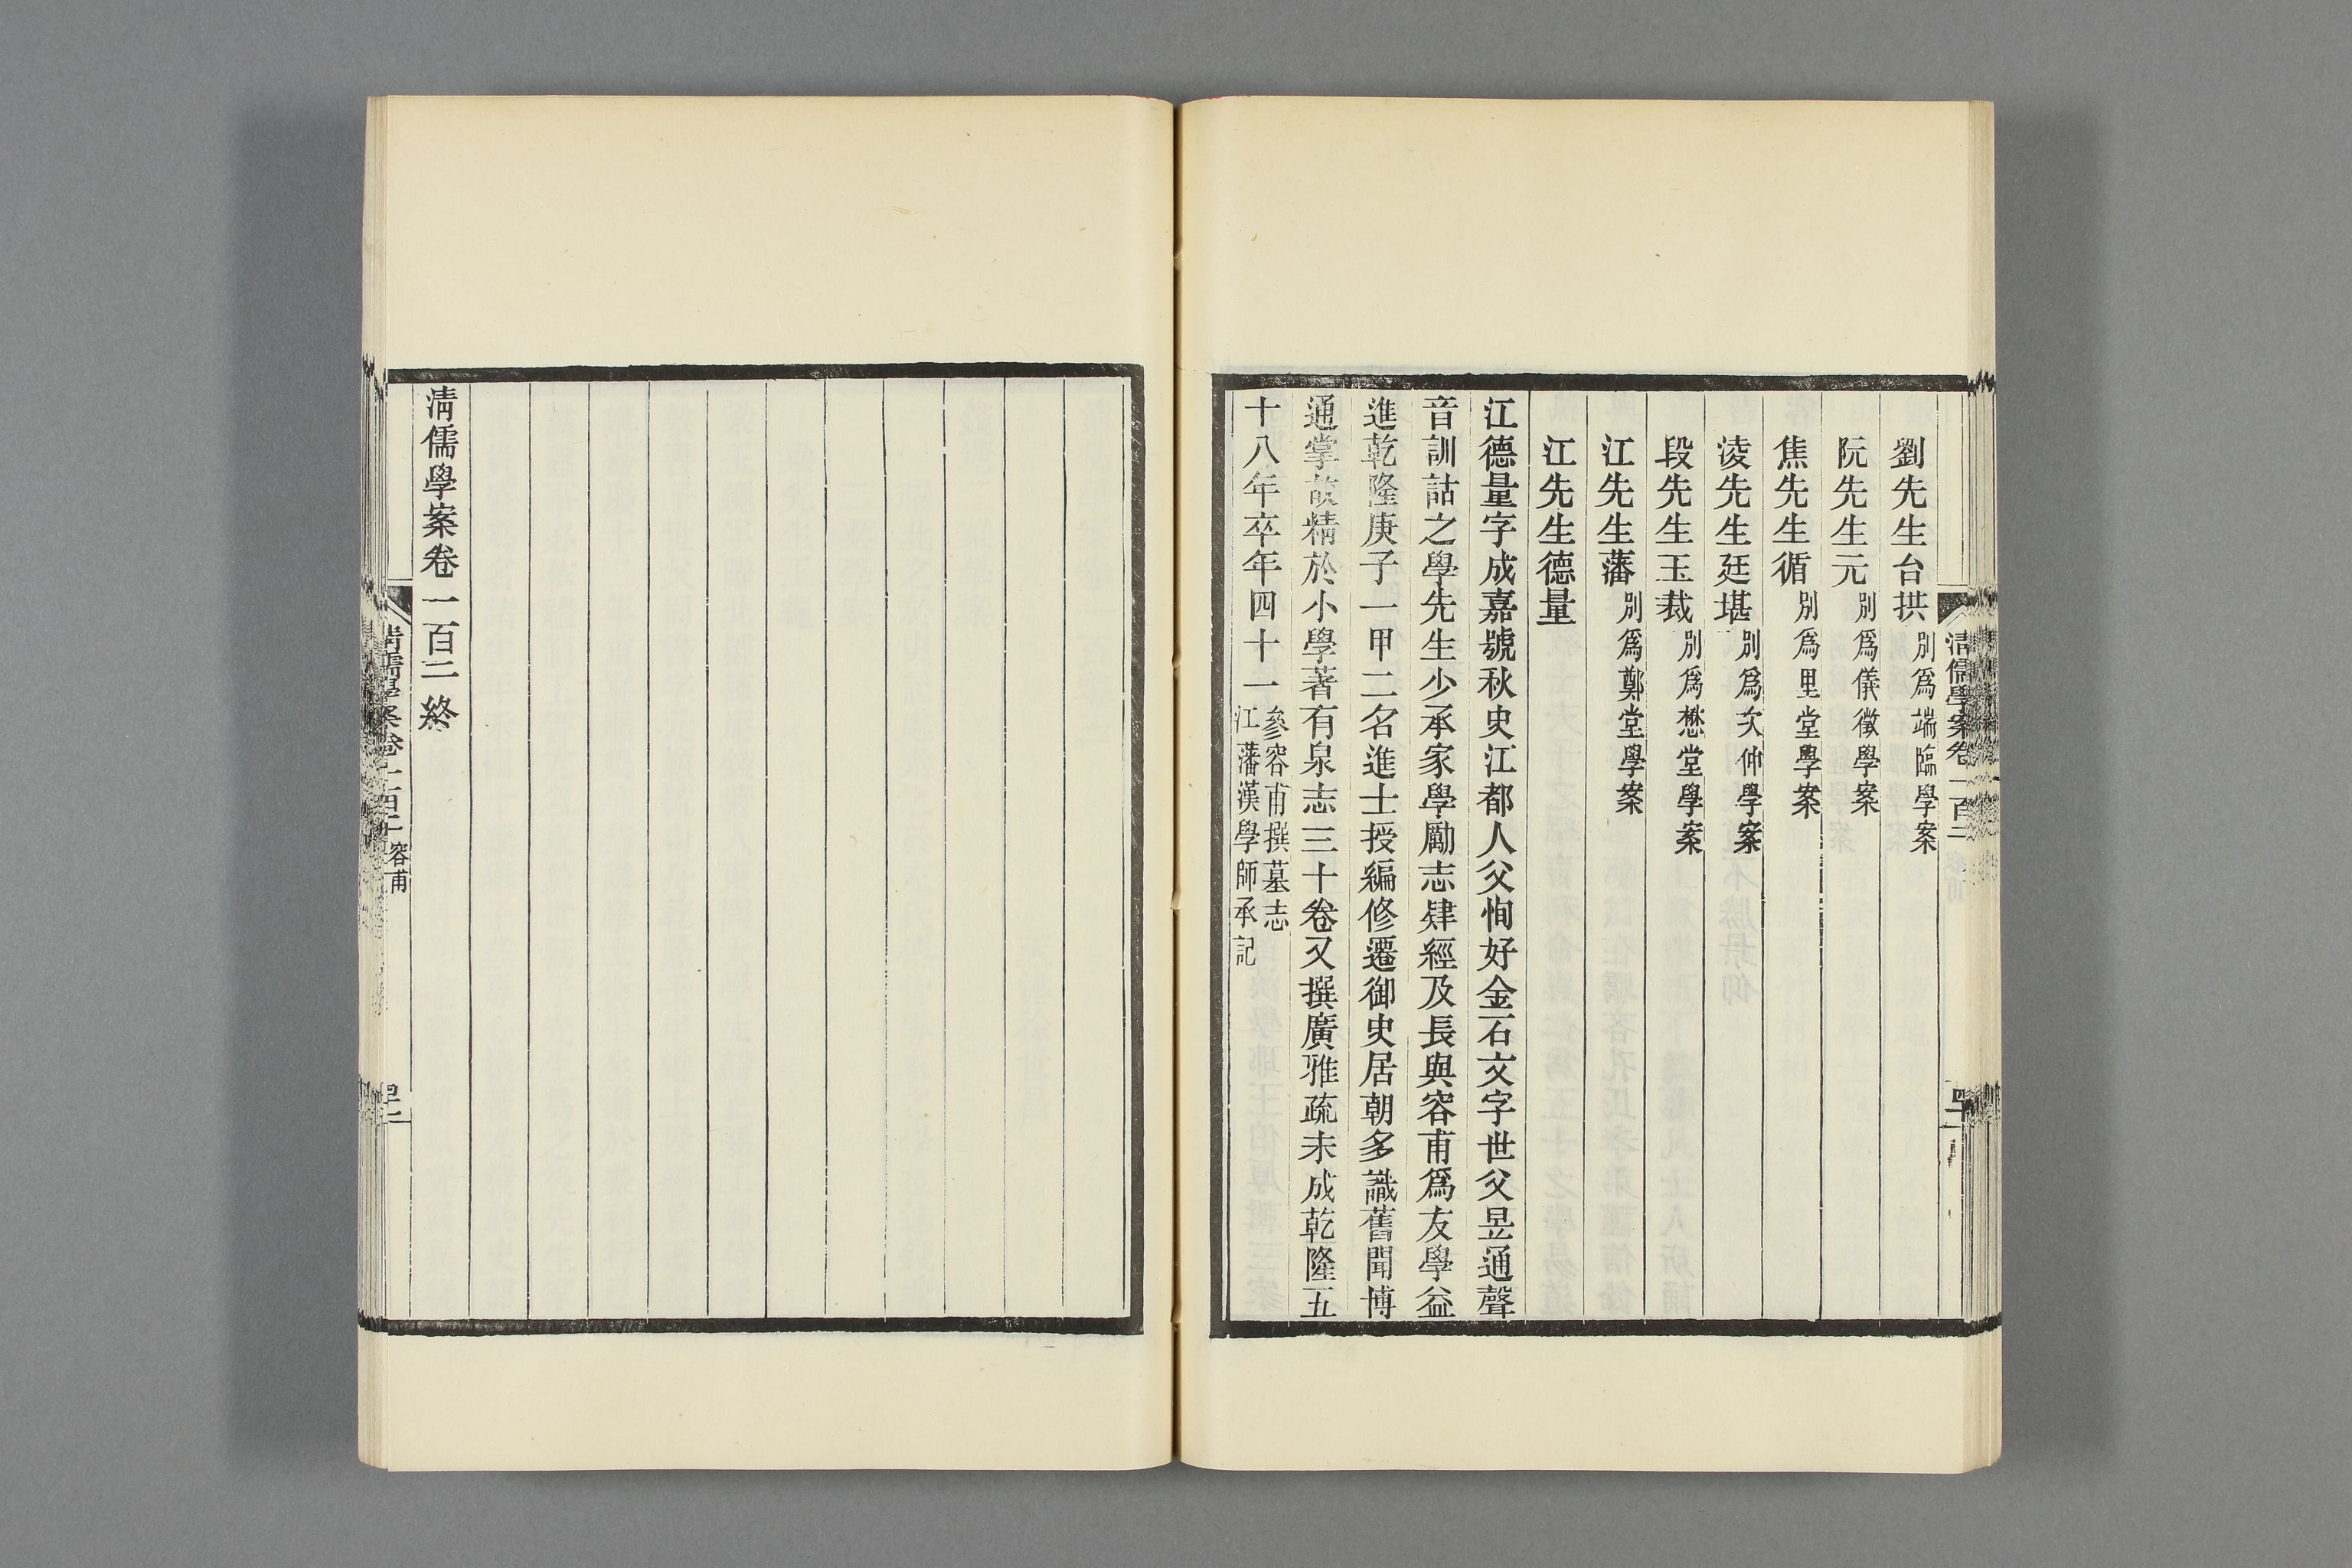 劉先生台拱 別爲端臨學案
阮先生元 別爲儀徵學案
焦先生循 別爲里堂學案
淩先生廷堪 別爲次仲學案
段先生玉裁 別爲懋堂學案
江先生藩 別爲鄭堂學案
江先生德量
江德量字成嘉號秋史江都人父恂好金石文字世父昱通聲
音訓詁之學先生少承家學勵志肄經及長與容甫爲友學益
進乾隆庚子一甲二名進士授編修遷御史居朝多識舊聞博
通掌故精於小學著有泉志三十卷又撰廣雅疏未成乾隆五
十八年卒年四十一 參容甫撰墓志
江藩漢學師承記
清儒學案卷一百二終
清儒學案卷一百二 容甫